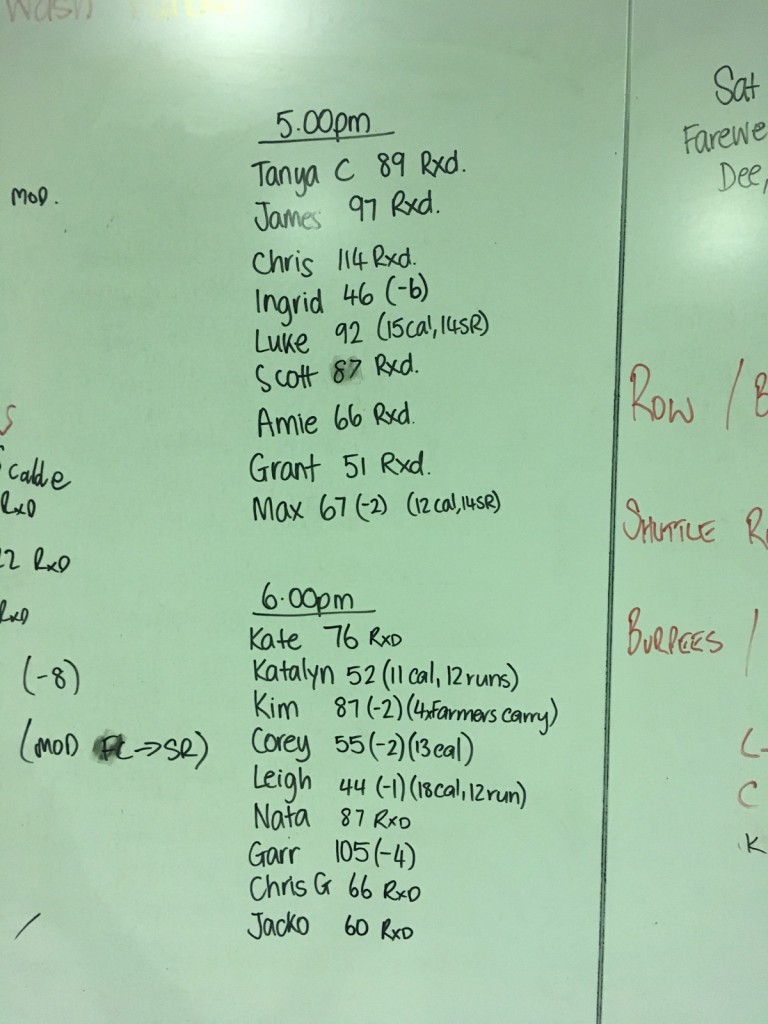 Wash
5.00pm
Tanya C 89 Rxd.
James 97 Rxd.
Chris 114 Rxd.
Ingrid 46 (-6)
Luke 92 (15cal, 14SR)
Scott 87 Rxd.
Amie 66 Rxd.
Grant 51 Rxd.
Max 67 (-2) (12cal, 14SR)
6.00pm
Kate 76 RxD
Katalyn 52 (11 cal, 12runs)
Kim 87 (-2) (4xFarmers carry)
Corey 55 (-2) (13cal)
Leigh 44 (-1) (18cal, 12run)
Nata 87 RxD
Garr 105 (-4)
Chris G 66 RxD
Jacko 60 RxD
MOD.
S
calde
RxD
22 RxD
RxD
(-8)
(MOD FC → SR)
/
Sat
Farewe
Dee,
ROW / B
SHUTTLE R
BURPEES /
C
K